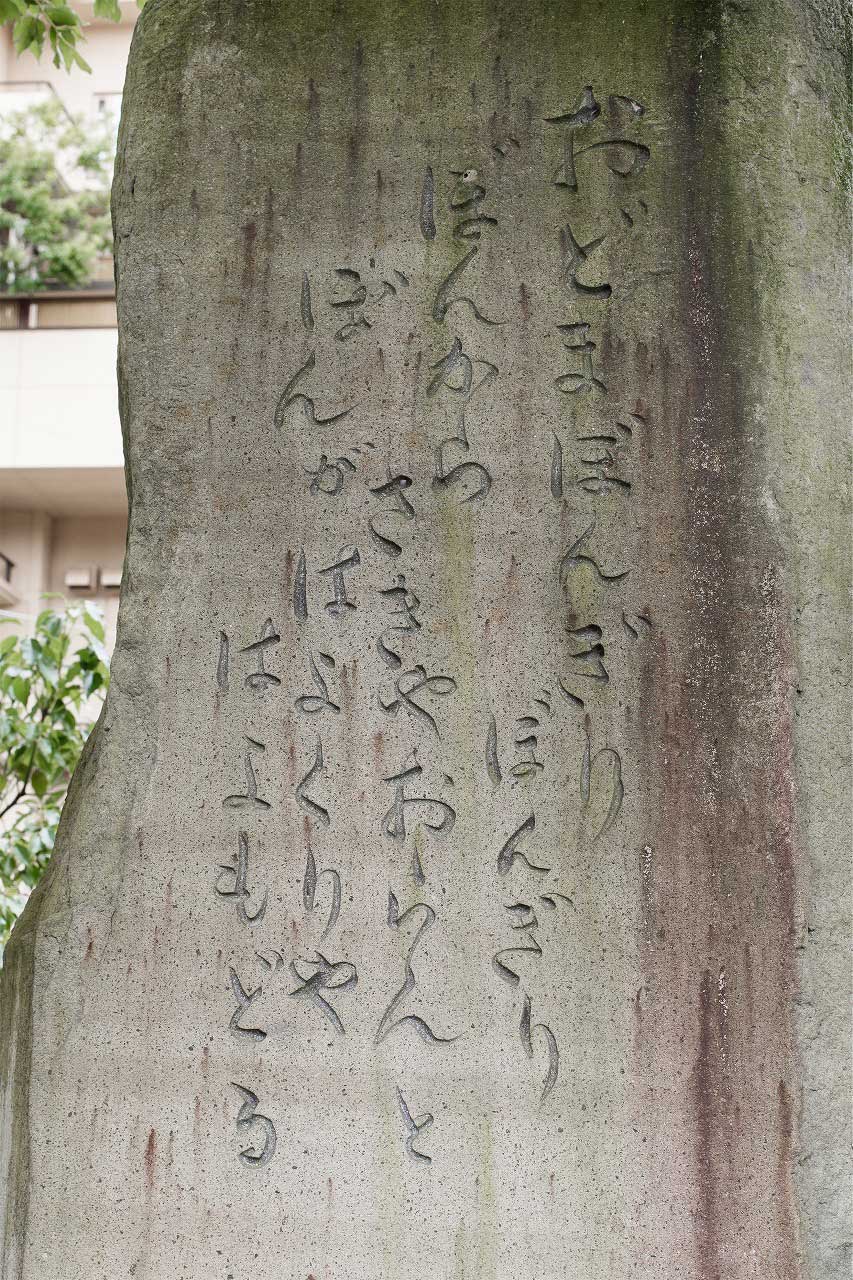 おどまぼんぎり
ぼんぎり
ぼんから
さきやおらんと
ぼんがはよくりや
はよもどる